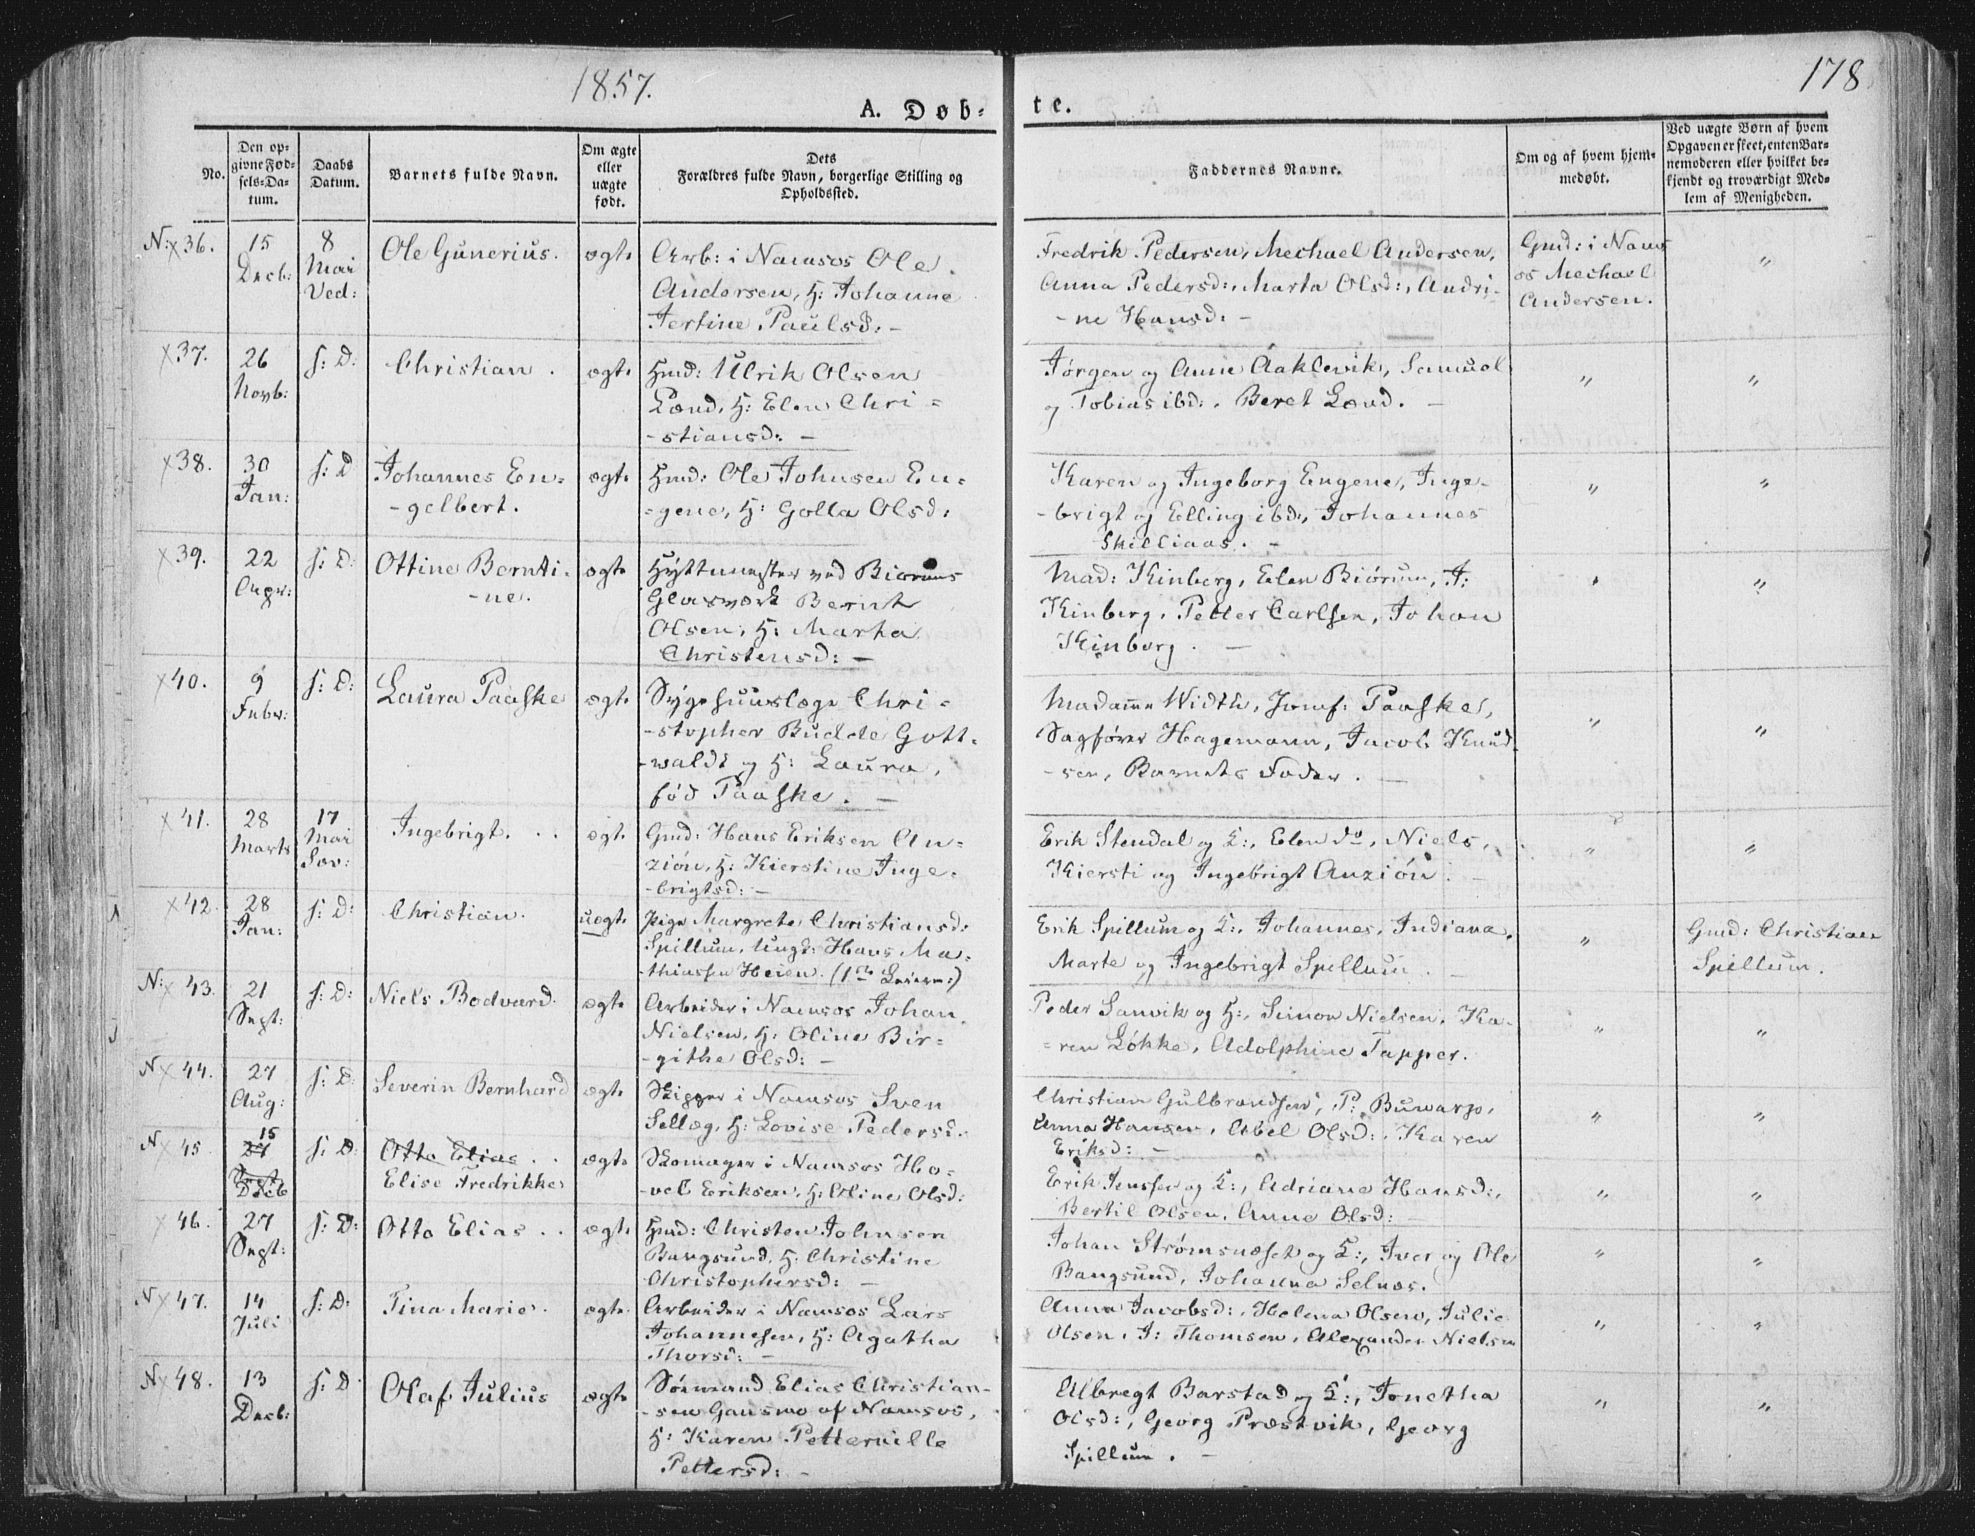 1857.
178
A. Døb-
te.
No.
Den op-
givne Fød-
sels-Da-
tum.
Daabs
Datum.
Barnets fulde Navn.
Om ægte
eller
uægte
født.
Dets
Forældres fulde Navn, borgerlige Stilling og
Opholdssted.
Faddernes Navne.
Om og af hvem hjem-
medøbt.
Ved uægte Børn af hvem
Opgaven er skeet, enten Bar-
nemoderen eller hvilket be-
kjendt og troværdigt Med-
lem af Menigheden.
N: x 36.
15
Decb:
8
Mai
Ved:
Ole Gunerius.
ægt.
Arb: i Namsos Ole
Andersen, H: Johanne
Jertine Paulsd: -
Fredrik Pedersen, Mechael Andersen,
Anna Pedersd:, Marta Olsd:, Andri-
-ne Hansd: -
Gmd: i Nams
os Mechael
Andersen.
"
x 37.
26
Novb:
s: D:
Christian.
ægt.
Hmd: Ulrik Olsen
Lænd, H: Elen Chri-
-stiansd: -
Jørgen og Anne Aaklevik, Samuel
og Tobias ibd:, Beret Lænd. -
"
"
x 38.
30
Jan:
s: D
Johannes En-
-gelbert.
ægt.
Hmd: Ole Johnsen En-
-gene, H: Golla Olsd:
Karen og Ingeborg Engene, Inge-
-brigt og Elling ibd:, Johannes
Skilliaas. -
"
"
x 39.
22
Apr:
s: D:
Ottine Bernti-
-ne.
ægt.
Hyttemester ved Biørums
Glasværk Bernt
Olsen, H: Martha
Christensd: -
Mad: Kinberg, Elen Biørum, J:
Kinberg, Petter Carlsen, Johan
Kinberg. -
"
"
x 40.
9
Febr:
s: D:
Laura Paaske
ægt.
Sygehuuslæge Chri-
-stopher Budde Gott-
-waldt og H: Laura,
fød Paaske. -
Madame Width, Jomf: Paaske,
Sagfører Hagemann, Jacob Knud-
-sen, Barnets Fader. -
"
"
x 41.
28
Marts
17
Mai
Sov:
Ingebrigt.
ægt.
Gmd: Hans Eriksen An-
ziøn, H: Kierstine Inge-
-brigtsd: -
Erik Stendal og K:, Elen do, Niels,
Kiersti og Ingebrigt Anziøn. -
"
"
x 42.
28
Jan:
s: D:
Christian.
uægt.
Pige Margrete Christiansd:
Spillum, Ungk: Hans Ma-
-thiassen Heien. (1ste Leierm:)
Erik Spillum og K:, Johannes, Indiana,
Marte og Ingebrigt Spillum. -
"
Gmd: Christian
Spillum.
N: x 43.
21
Sept:
s: D:
Niels Bodvard.
ægt.
Arbeider i Namsos Johan
Nielsen, H: Oline Bir-
-githe Olsd: -
Peder Sanvik og H:, Simon Nielsen, Ka-
-ren Løkke, Adolphine Tapper.
"
"
N x 44.
27
Aug:
s: D:
Severin Bernhard
ægt.
Skipper i Namsos Sven
Sellæg, H: Lovise Pedersd:
Christian Gulbrandsen, P: Buwarp,
Anna Hansen, Abel Olsd:, Karen
Eriksd: -
"
"
N x 45.
15
27
Sept
Decb
s: D:
Otto Elias
Elise Fredrikke
ægt.
Skomager i Namsos Ho-
-vel Eriksen, H: Oline Olsd:
Erik Jenssen og K:, Adriane Hansd:,
Bertil Olsen, Anne Olsd: -
"
"
x 46.
27
Sept:
s: D:
Otto Elias
ægt.
Hmd: Christen Johnsen
Bangsund, H: Christine
Christophersd: -
Johan Strømsnæset og K:, Iver og Ole
Bangsund, Johanna Selnæs.
"
"
N x 47.
14
Juli
s: D:
Tina Marie.
ægt.
Arbeider i Namsos Lars
Johannesen, H: Agatha
Thorsd: -
Anna Jacobsd:, Helena Olsen, Julie
Olsen, J: Thomsen, Alexander Nielsen
"
"
N x 48.
13
Decb:
s: D
Olaf Julius
ægt.
Sømand Elias Christian-
-sen Gansmo af Namsos,
H: Karen Petternille
Pettersd: -
Albregt Barstad og K:, Jonetha
Olsd:, Georg Præstvik, Georg
Spillum. -
"
"